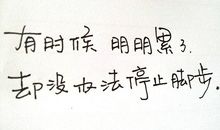 有时候 明明累了.
却没办法停止脚步.